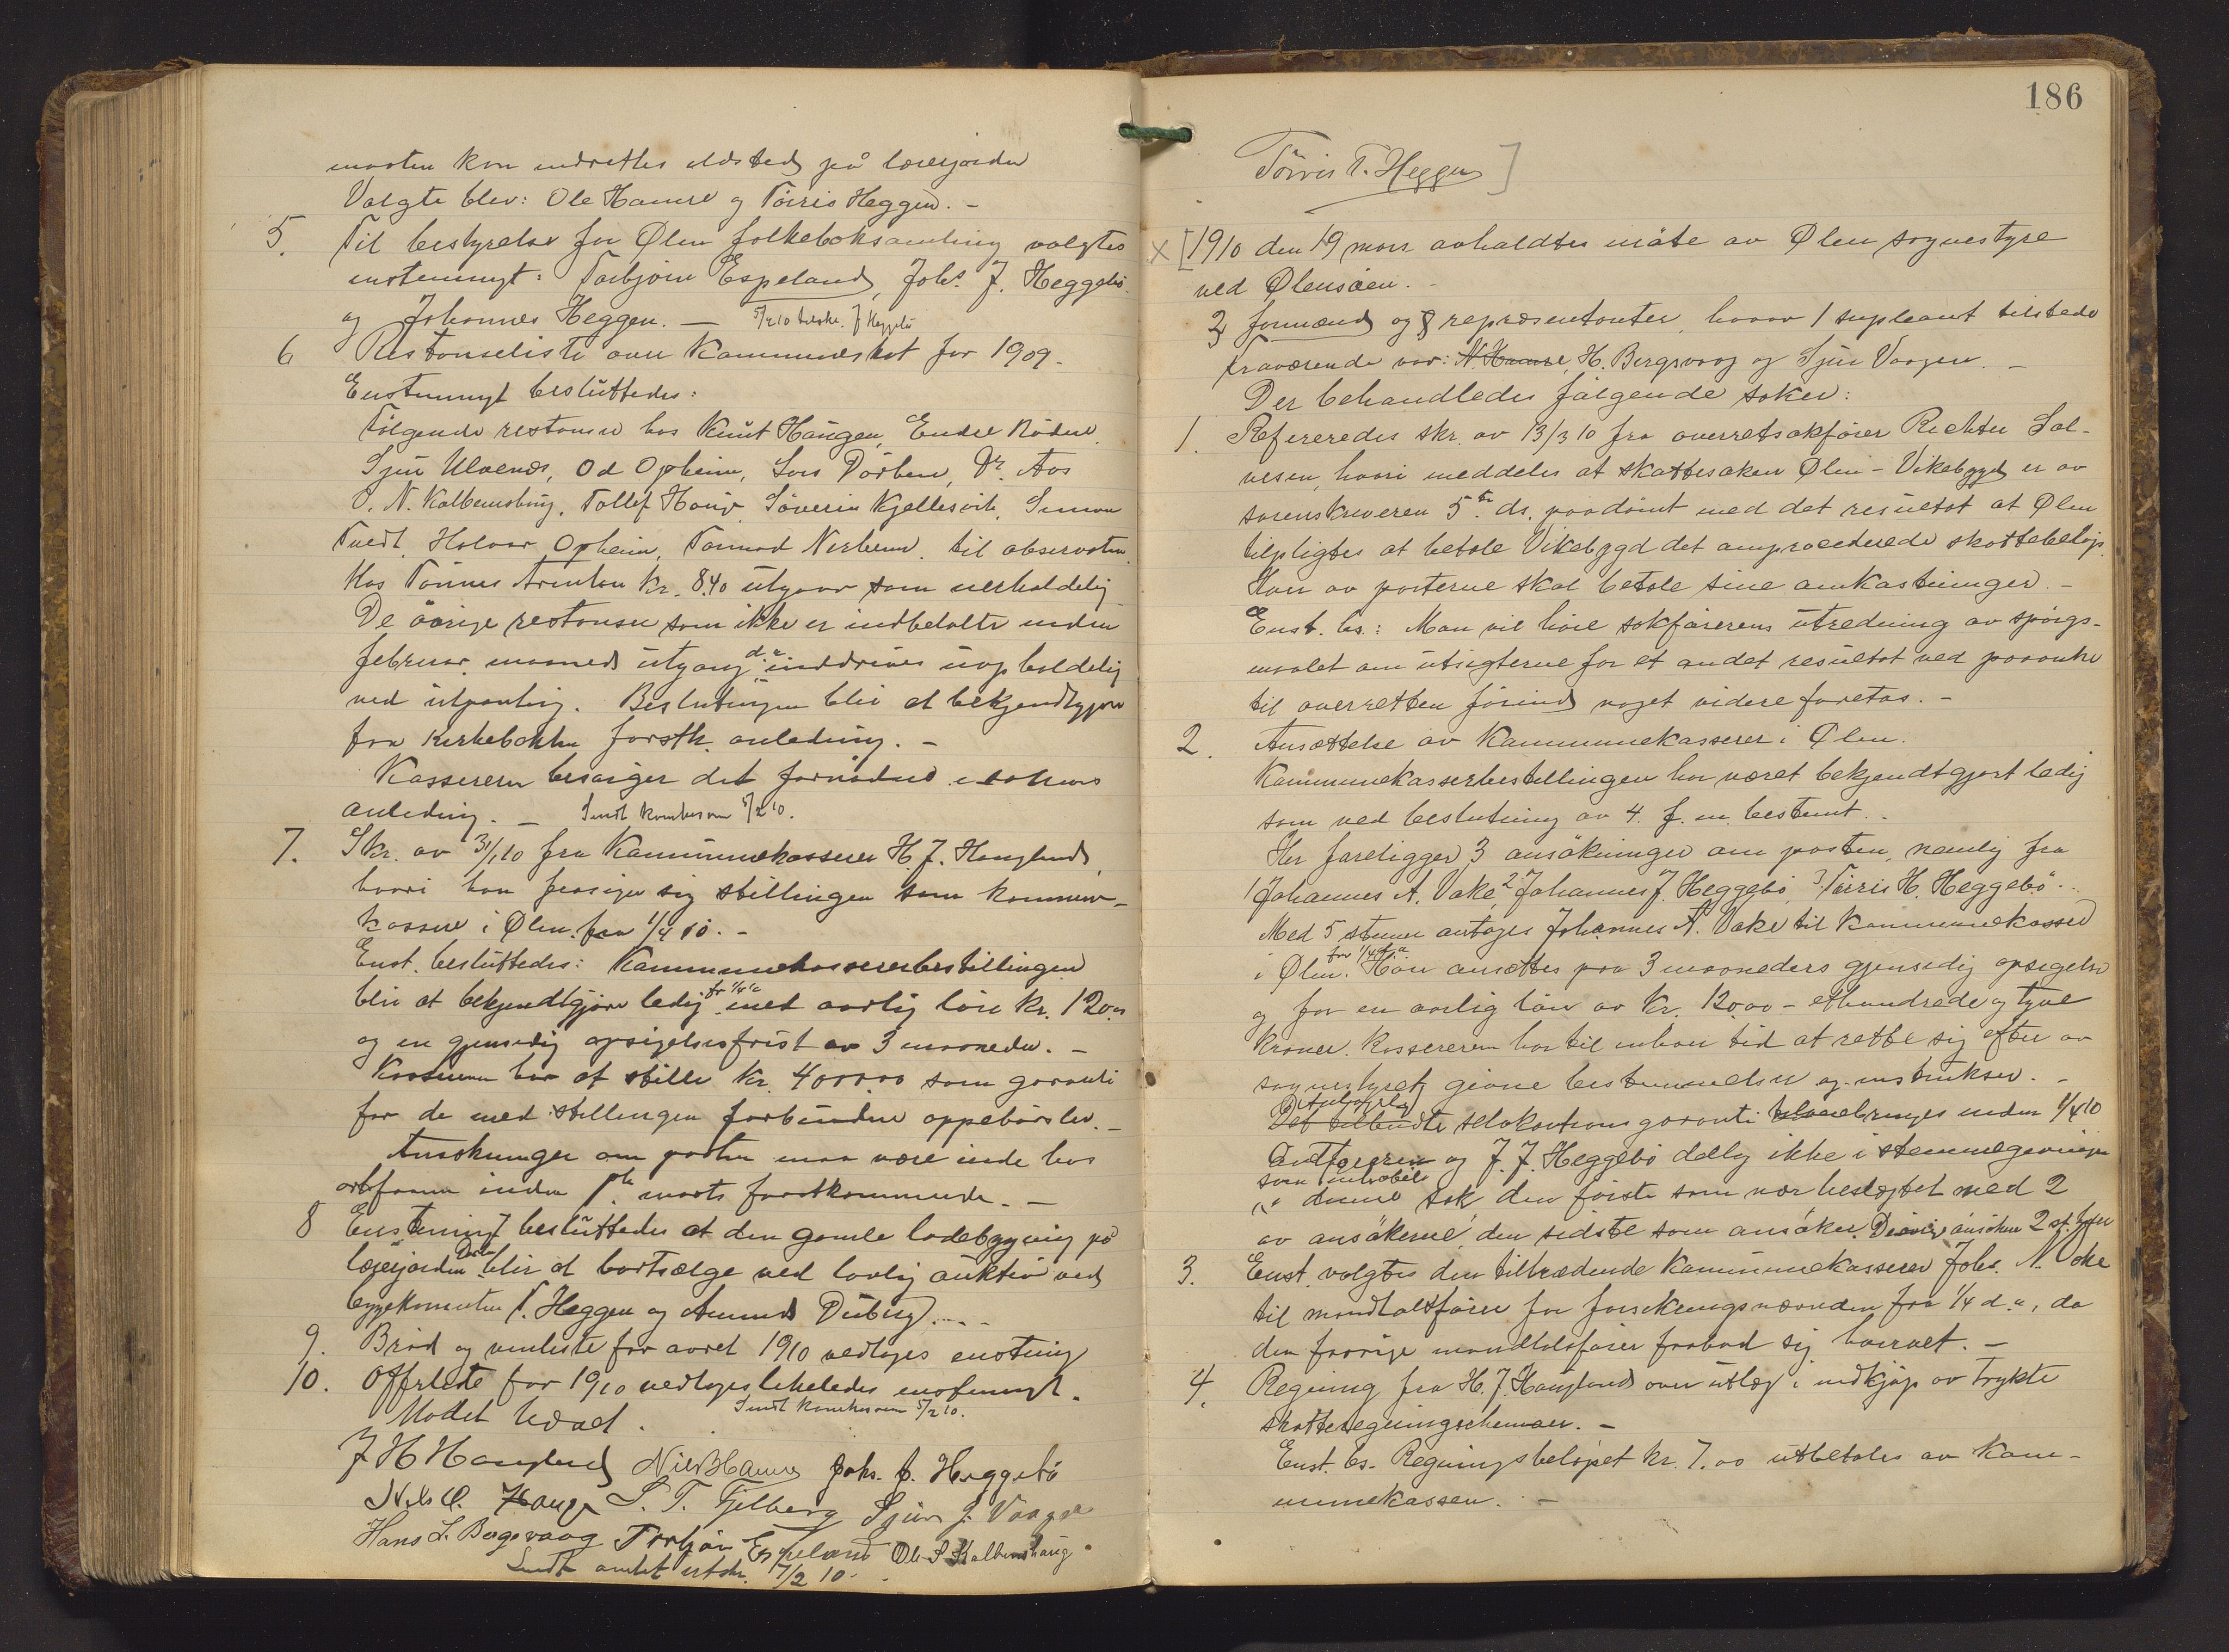 maaten kan indrettes ildsted på lærerjorden
Valgte blev: Ole Hamre og Törris Heggen. -
5. Til bestyrelse for Ølen folkeboksamling valgtes
enstemmigt: Torbjörn Espeland, Johs. J. Heggebö
og Johannes Heggen. — 5/2 10 tilskr. J Heggebö
6 Restanseliste over Kommuneskat for 1909.
Enstemmigt besluttedes:
Fölgende restanser hos Knut Haugen, Endre Rödne,
Sjur Ulvenes, Od Opheim, Lars Dörheim, Dr. Aas
O. N. Kalbeinshaug, Tollef Hauge, Söverin Kjellesvik, Simon
Tvedt, Halvor Opheim, Tormod Nerheim, til observation.
Hos Tönnes Arentsen kr. 8.40 utgaar som uerholdelig
De övrige restanser som ikke er indbetalte inden
februar maaneds utgang d.a. inddrives uopholdelig
ved utpanting. Beslutningen blir at bekjendtgjöre
fra kirkebakken forstk. anledning. -
Kassereren besörger det fornödne i sakens
anledning. — Sendt komkassen 5/2 10.
7. Skr. av 31/1 10 fra Kommunekasserer H. J. Haugland,
hvori han frasiger sig stillingen som kommune-
kasserer i Ølen fra 1/4 10. -
Enst. besluttedes: Kommunekassererbestillingen
blir at bekjendtgjöre ledig fr 1/4 10 med aarlig lön kr. 120.00
og en gjensidig opsigelsesfrist av 3 maaneder. -
Kassereren har at stille kr. 4000.00 som garanti
for de med stillingen forbundne oppebörsler. -
Ansökninger om posten maa være inde hos
ordföreren inden 1ste marts förstkommende. -
8 Enstemmigt besluttedes at den gamle ladebygning på
lægejorden Dalen blir at bortsælge ved lovlig auktion ved
byggekomiteen T. Heggen og Amund Duberg. - -
9. Bröd og vinliste for aaret 1910 vedtoges enstemmig
10. Offrliste for 1910 vedtoges likeledes enstemmigt.
Mödet hævet. Sendt komkassen 5/2 10.
J H Haugland Nils Hamre Johs. J. Heggebö
Nils O. Hauge S. T. Fjelberg Sjur J. Vaage
Hans L. Bergsvaag Torbjörn Espeland Ole S Kalbeinshaug
Sendt amtet utskr. 7/2 10.
186
Törris T. Heggen]
x [1910 den 19 mars avholdtes möte av Ølen sognestyre
ved Ølensöen. -
3 formænd og 8 repræsentanter, hvorav 1 supleant tilstede
Fraværende var: N. Hamre, H. Bergsvaag og Sjur Vaagen. -
Der behandledes fölgende saker:
1. Refereredes skr. av 13/3 10 fra overretssakförer Richter Sal-
vesen, hvori meddeles at skattesaken Ølen - Vikebygd er av
sorenskriveren 5te ds. paadömt med det resultat at Ølen
tilpligtes at betale Vikebygd det omprocederede skattebelöp.
Hver av parterne skal betale sine omkostninger. -
Enst. bs.: Man vil höre sakförerens utredning av spörgs-
maalet om utsigterne for et andet resultat ved paaanke
til overretten förend noget videre foretas. -
2. Ansættelse av Kommunekasserer i Ølen.
Kommunekassererbestillingen har været bekjendtgjort ledig
som ved beslutning av 4. f. m. bestemt. .
Her foreligger 3 ansökninger om posten, nemlig fra
1 Johannes A. Vake, 2 Johannes J. Heggebö, 3 Törris H. Heggebö. .
Med 5 stemmer antoges Johannes A. Vake til Kommunekasserer
i Ølen fra 1/4 d.a. Han ansættes paa 3 maaneders gjensidig opsigelse
og for en aarlig lön av kr. 120.00 - ethundrede og tyve
kroner. Kassereren har til enhver tid at rette sig efter av
sognestyret givne bestemmelser og instrukser. -
Det tilbudte selvkautions garanti bringes inden 1/4 10
Ordföreren og J. J. Heggebö deltog ikke i stemmegivningen
som inhabile
i denne sak den förste som nær beslægtet med 2
av ansökerne, den sidste som ansöker. De övrige ansökere 2 st. hver
3. Enst. valgtes den tiltrædende Kommunekasserer Johs. A. Vake
til mandtalsförer for forsikringsnævnden fra 1/4 d.a., da
den forrige mandtalsförer frabad sig hvervet. -
4. Regning fra H. J. Haugland over utlæg i indkjöp av trykte
skatteregningsschemaer. -
Enst. bs. Regningsbelöpet kr. 7.00 utbetales av Kom-
munekassen. -